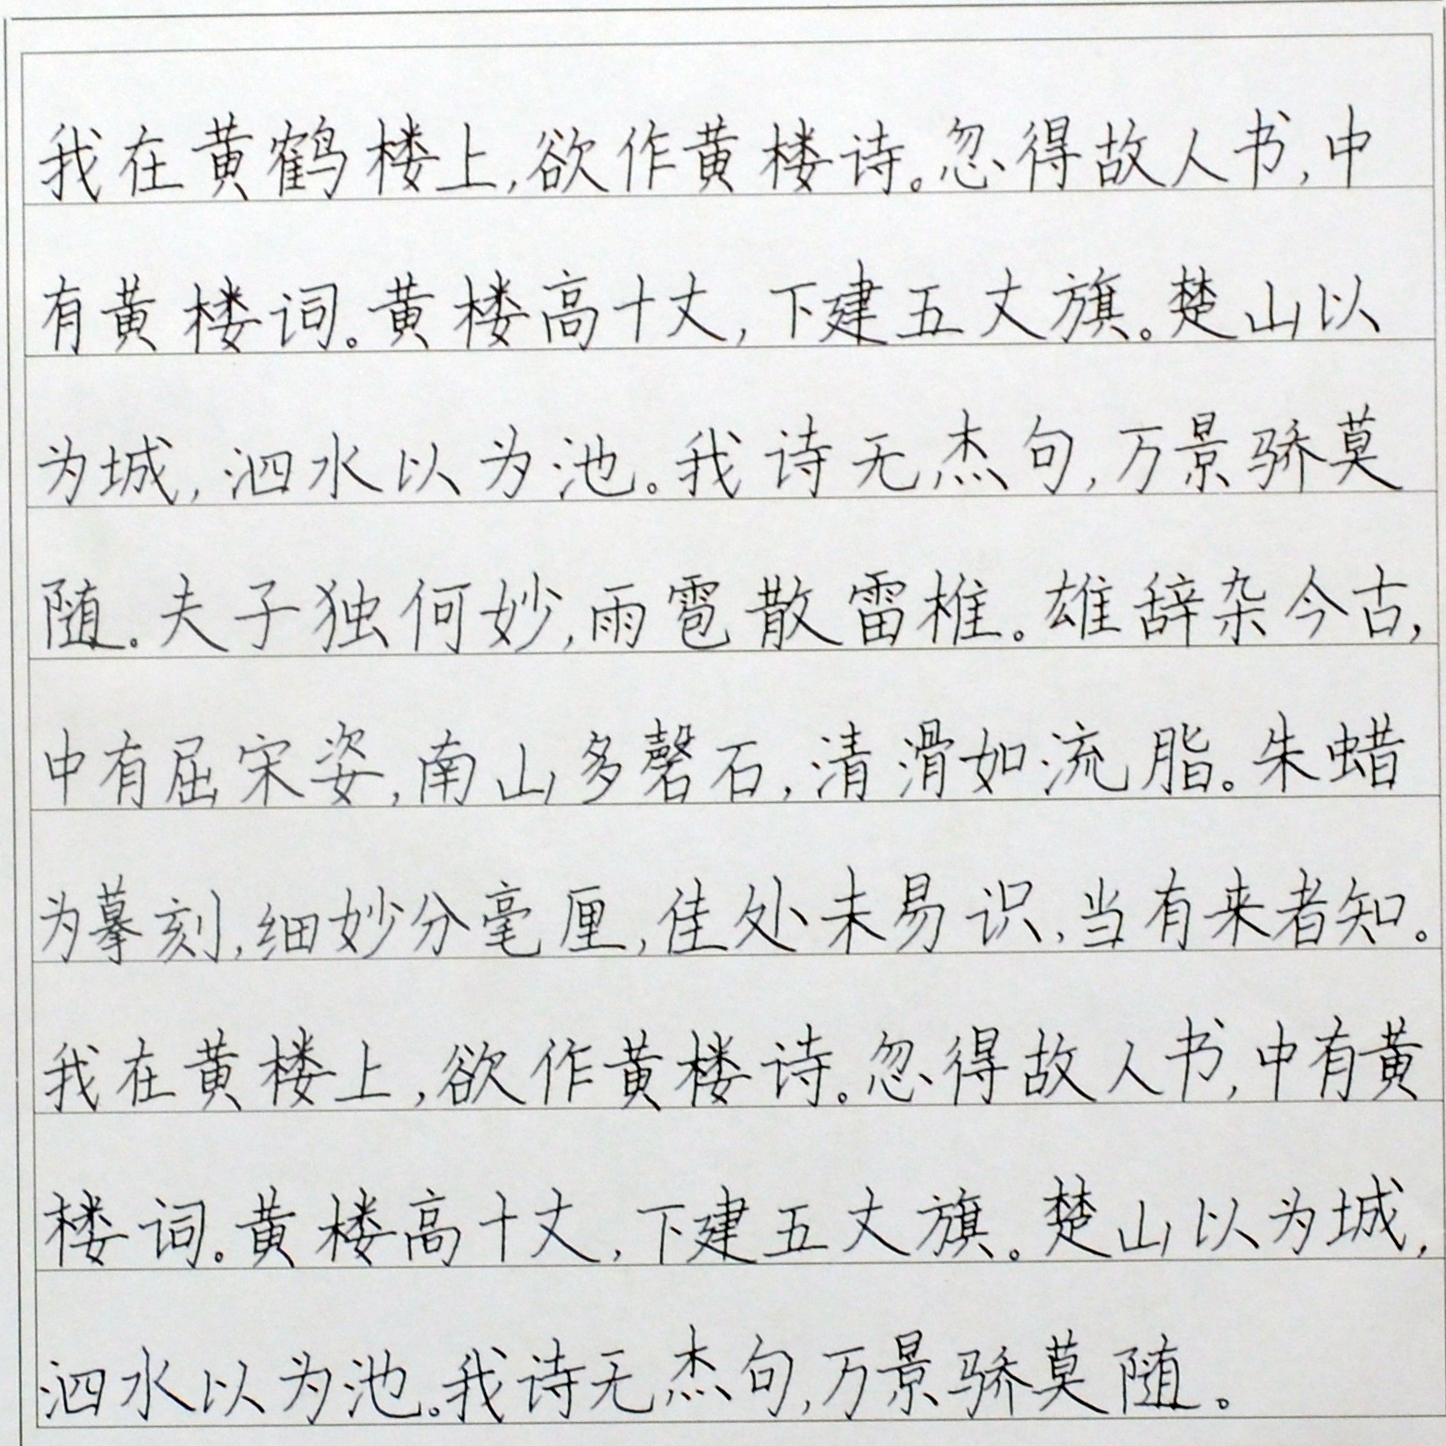 我在黄鹤楼上,欲作黄楼诗。忽得故人书,中
有黄楼词。黄楼高十丈,下建五丈旗。楚山以
为城,泗水以为池。我诗无杰句,万景骄莫
随。夫子独何妙,雨雹散雷椎。雄辞杂今古,
中有屈宋姿,南山多磬石,清滑如流脂。朱蜡
为摹刻,细妙分毫厘,佳处未易识,当有来者知。
我在黄楼上,欲作黄楼诗。忽得故人书,中有黄
楼词。黄楼高十丈,下建五丈旗。楚山以为城,
泗水以为池。我诗无杰句,万景骄莫随。